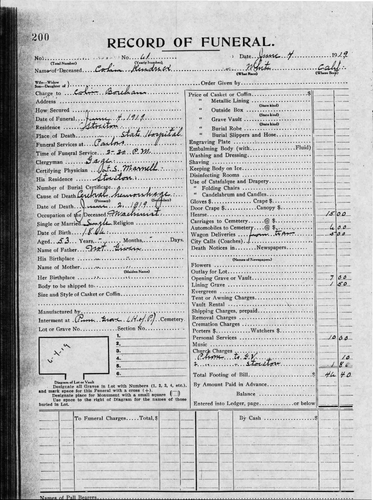 200
RECORD OF FUNERAL.
No. No. 61 Date June 4 1919
(Total Number) (Yearly Number)
Name of Deceased Colin White Calif.
(What Race) (Where Born)
Order Given by
Charge to Colin
Address
How Secured
Date of Funeral June 4, 1919.
Residence Stockton
Place of Death State Hospital
Funeral Services at Parlors
Time of Funeral Service 2-30 P.M.
Clergyman Sage
Certifying Physician
His Residence Stockton.
Number of Burial Certificate
Cause of Death Cerebral hemorrhage
Date of Death June 2, 1919.
Occupation of the Deceased Machinist
Single or Married Single Religion
Date of Birth 1866
Aged 53 Years, Months, Days.
Name of Father Not Given
His Birthplace
Name of Mother
(Maiden Name)
Her Birthplace
Body to be shipped to
Size and Style of Casket or Coffin
Manufactured by
Interment at Cemetery
Lot or Grave No. Section No.
Diagram of Lot or Vault
Designate all Graves in Lot with Numbers (1, 2, 3, 4, etc.), and mark space for this Funeral with a cross (+).
Designate place for Monument with a small square
Use space to the right of Diagram for the names of those buried in Lot.
Price of Casket or Coffin
" Metallic Lining
(State kind)
" Outside Box
(State kind)
" Grave Vault
(State kind)
" Burial Robe
(State kind)
" Burial Slippers and Hose
Engraving Plate
Embalming Body (with Fluid)
(Name Fluid)
Washing and Dressing
Shaving
Keeping Body on Ice
Disinfecting Rooms
Use of Catafalque and Drapery
" Folding Chairs
" Candelabrum
Gloves $ Crape $
Door Crape $ Gloves $
Hearse 15 00
Carriages to Cemetery @ $
Automobiles to Cemetery @ $ 6 00
Wagon Deliveries from train 5 00
City Calls (Coaches)
Death Notices in Newspapers
(Names of Newspapers)
Flowers
Outlay for Lot
Opening Grave or Vault 7 00
Lining Grave 1 50
Evergreen
Tent or Awning Charges
Vault Rental
Shipping Charges, prepaid
Removal Charges
Cremation Charges
Porters $ Watchers $
Personal Services 10 00
Music
Church Charges
Phone to S.F. 10
" " Stockton 1 80
Total Footing of Bill $46 40
By Amount Paid in Advance
Balance
Entered into Ledger, page or below
To Funeral Charges Total, $ By Cash $
Names of Pall Bearers